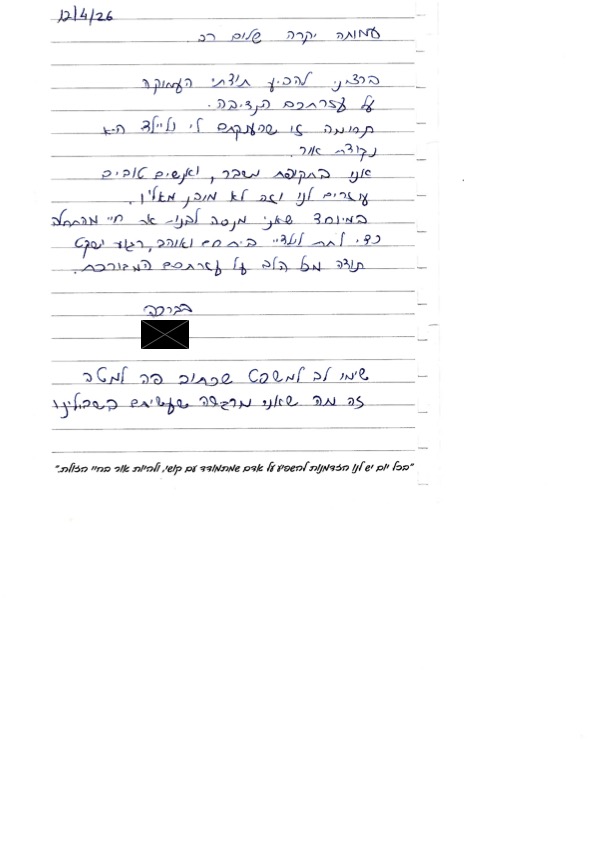 12/4/26
עמותה יקרה שלום רב
ברצוני להביע תודתי העמוקה
על עזרתכם הנדיבה.
תרומה זו שהענקתם לי ולילד היא
נקודת אור.
אני בתקופת משבר, ואנשים טובים
עוזרים לנו וזה לא מובן מאליו.
במיוחד שאני מנסה לבנות את חיי מהתחלה
כדי לתת לילדיי בית חם ואוהב, רגוע ושקט
תודה מכל הלב על עזרתכם המבורכת.
בברכה
שימו לב למשפט שכתוב פה למטה
זה מה שאני מרגישה שעשיתם בשבילינו
"בכל יום יש לנו הזדמנות להשפיע על אדם שמתמודד עם קושי, ולהיות אור בחיי הזולת."